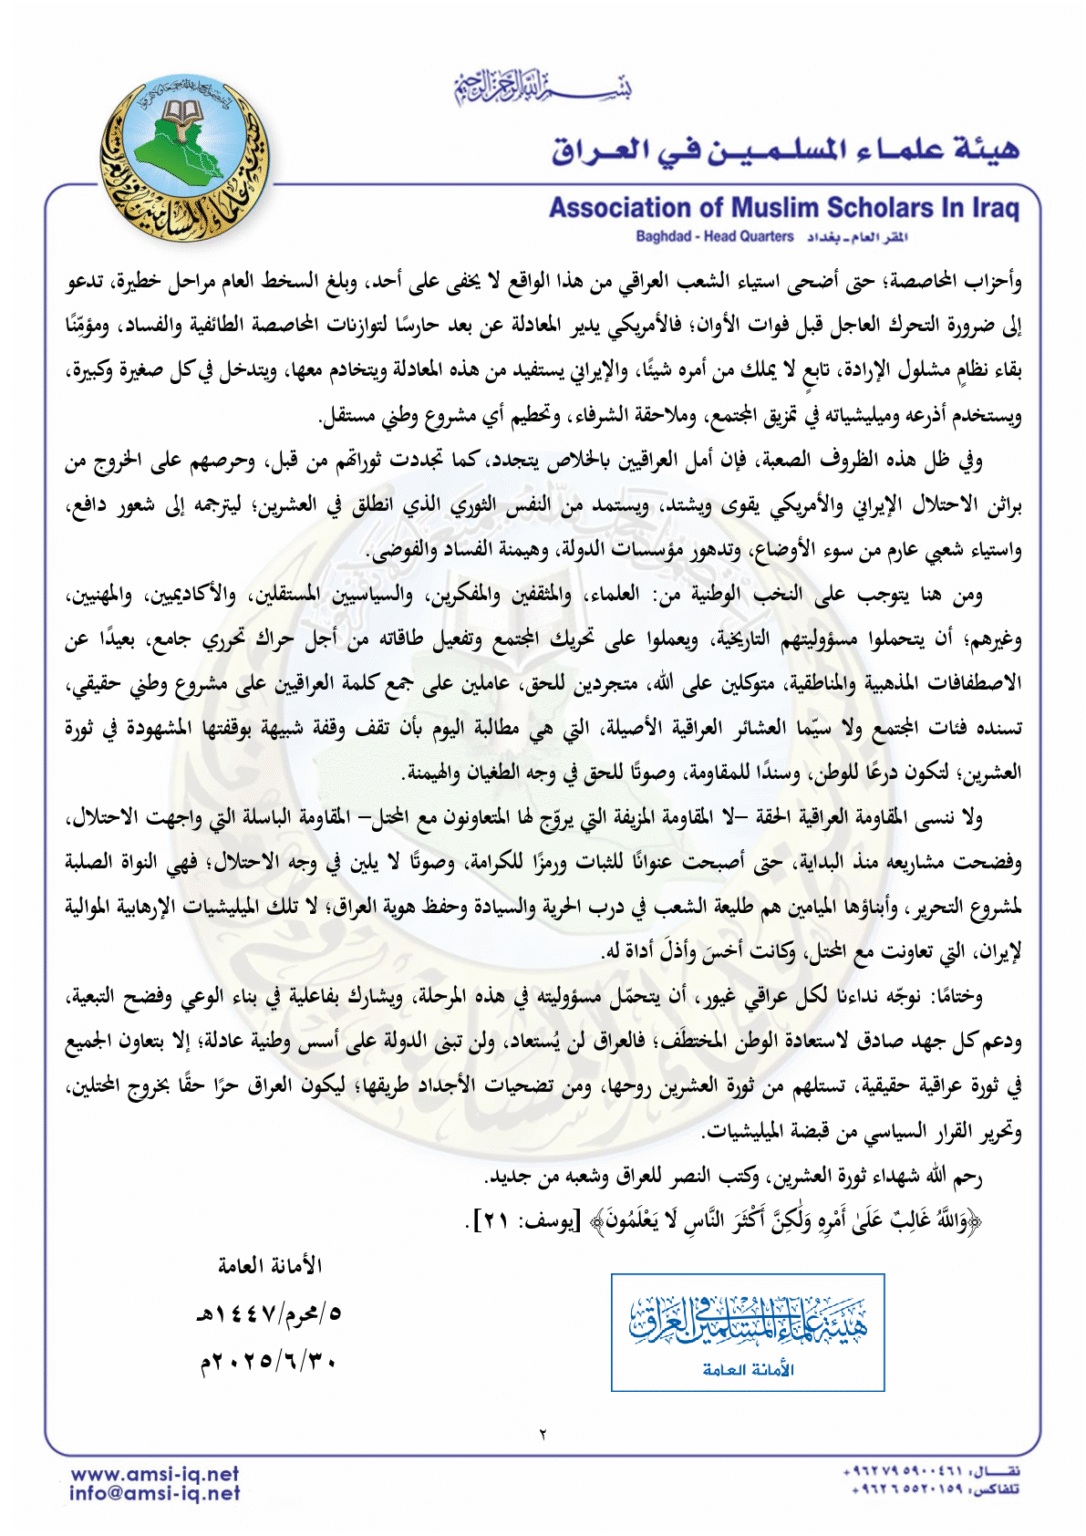 بسم الله الرحمن الرحيم
هيئة علماء المسلمين في العراق
Association of Muslim Scholars In Iraq
Baghdad - Head Quarters المقر العام - بغداد
وأحزاب المحاصصة؛ حتى أضحى استياء الشعب العراقي من هذا الواقع لا يخفى على أحد، وبلغ السخط العام مراحل خطيرة، تدعو
إلى ضرورة التحرك العاجل قبل فوات الأوان؛ فالأمريكي يدير المعادلة عن بعد حارسًا لتوازنات المحاصصة الطائفية والفساد، ومؤمِّنًا
بقاء نظامٍ مشلول الإرادة، تابعٍ لا يملك من أمره شيئًا، والإيراني يستفيد من هذه المعادلة ويتخادم معها، ويتدخل في كل صغيرة وكبيرة،
ويستخدم أذرعه وميليشياته في تمزيق المجتمع، وملاحقة الشرفاء، وتحطيم أي مشروع وطني مستقل.
وفي ظل هذه الظروف الصعبة، فإن أمل العراقيين بالخلاص يتجدد، كما تجددت ثوراتهم من قبل، وحرصهم على الخروج من
براثن الاحتلال الإيراني والأمريكي يقوى ويشتد، ويستمد من النفس الثوري الذي انطلق في العشرين؛ ليترجمه إلى شعور دافع،
واستياء شعبي عارم من سوء الأوضاع، وتدهور مؤسسات الدولة، وهيمنة الفساد والفوضى.
ومن هنا يتوجب على النخب الوطنية من: العلماء، والمثقفين والمفكرين، والسياسيين المستقلين، والأكاديميين، والمهنيين،
وغيرهم؛ أن يتحملوا مسؤوليتهم التاريخية، ويعملوا على تحريك المجتمع وتفعيل طاقاته من أجل حراك تحرري جامع، بعيدًا عن
الاصطفافات المذهبية والمناطقية، متوكلين على الله، متجردين للحق، عاملين على جمع كلمة العراقيين على مشروع وطني حقيقي،
تسنده فئات المجتمع ولا سيّما العشائر العراقية الأصيلة، التي هي مطالبة اليوم بأن تقف وقفة شبيهة بوقفتها المشهودة في ثورة
العشرين؛ لتكون درعًا للوطن، وسندًا للمقاومة، وصوتًا للحق في وجه الطغيان والهيمنة.
ولا ننسى المقاومة العراقية الحقة –لا المقاومة المزيفة التي يروّج لها المتعاونون مع المحتل– المقاومة الباسلة التي واجهت الاحتلال،
وفضحت مشاريعه منذ البداية، حتى أصبحت عنوانًا للثبات ورمزًا للكرامة، وصوتًا لا يلين في وجه الاحتلال؛ فهي النواة الصلبة
لمشروع التحرير، وأبناؤها الميامين هم طليعة الشعب في درب الحرية والسيادة وحفظ هوية العراق؛ لا تلك الميليشيات الإرهابية الموالية
لإيران، التي تعاونت مع المحتل، وكانت أخسَ وأذلَ أداة له.
وختامًا: نوجّه نداءنا لكل عراقي غيور، أن يتحمّل مسؤوليته في هذه المرحلة، ويشارك بفاعلية في بناء الوعي وفضح التبعية،
ودعم كل جهد صادق لاستعادة الوطن المختطَف؛ فالعراق لن يُستعاد، ولن تبنى الدولة على أسس وطنية عادلة؛ إلا بتعاون الجميع
في ثورة عراقية حقيقية، تستلهم من ثورة العشرين روحها، ومن تضحيات الأجداد طريقها؛ ليكون العراق حرًا حقًا بخروج المحتلين،
وتحرير القرار السياسي من قبضة الميليشيات.
رحم الله شهداء ثورة العشرين، وكتب النصر للعراق وشعبه من جديد.
﴿وَاللَّهُ غَالِبٌ عَلَىٰ أَمْرِهِ وَلَٰكِنَّ أَكْثَرَ النَّاسِ لَا يَعْلَمُونَ﴾ [يوسف: ٢١].
الأمانة العامة
٥/محرم/١٤٤٧هـ
٢٠٢٥/٦/٣٠م
هيئة علماء المسلمين في العراق
الأمانة العامة
٢
www.amsi-iq.net
info@amsi-iq.net
نقــال: ٩٦٢٧٩٥٩٠٠٤٦١+
تلفاكس: ٩٦٢٦٥٥٢٠١٥٩+